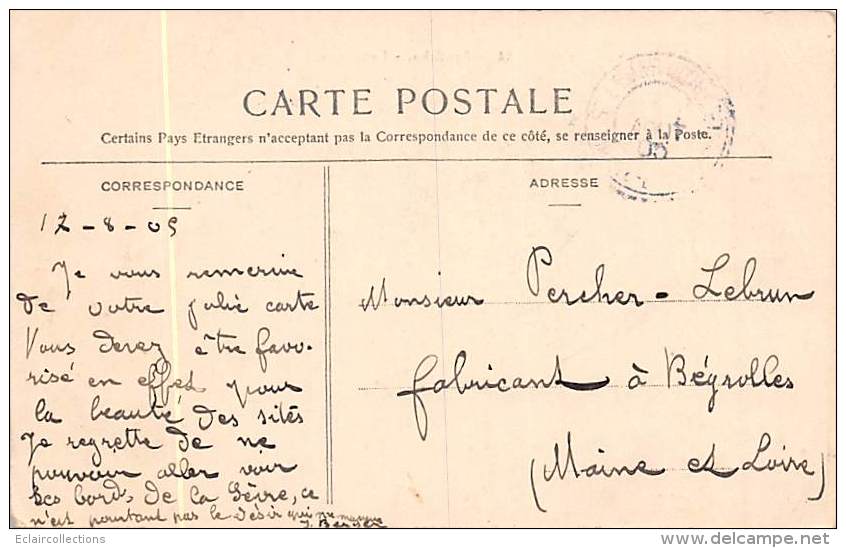 CARTE POSTALE
Certains Pays Etrangers n'acceptant pas la Correspondance de ce côté, se renseigner à la Poste.
CORRESPONDANCE
ADRESSE
12-8-05
Je vous remercie
de votre jolie carte
Vous devez être favo-
risé en effet pour
la beauté des sites
Je regrette de ne
pouvoir aller voir
les bords de la Sèvre, ce
n'est pourtant pas le désir qui me manque
Monsieur Percher-Lebrun
fabricant à Bégrolles
(Maine et Loire)
Eclaircollections
© www.delcampe.net